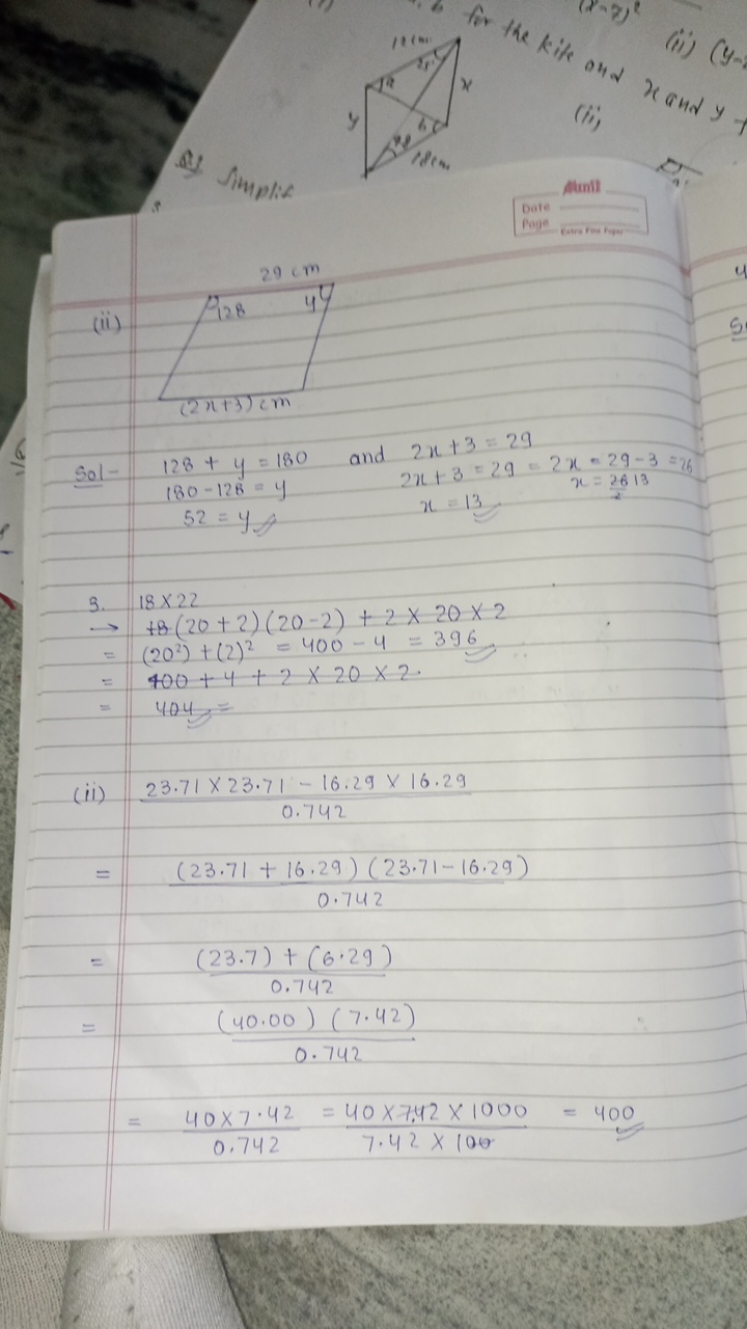 (x-7)²
(ii) (y-
b for the kite and x and y
(ii)
18cm
25
x
y
18cm
Q3 Simplif
Sunil
Date
Page
Extra Fine Paper
29 cm
(ii)
128
y
(2x+3) cm
Sol- 128 + y = 180 and 2x+3 = 29
180-128 = y 2x+3 = 29 = 2x = 29-3 = 26
52 = y x = 13 x = 26 13
2
3. 18×22
→ (20+2)(20-2) + 2 × 20 × 2
= (20²) + (2)² = 400 - 4 = 396
= 400 + 4 + 2 × 20 × 2.
= 404 =
(ii) 23.71 × 23.71 - 16.29 × 16.29
0.742
= (23.71 + 16.29) (23.71-16.29)
0.742
= (23.7) + (6.29)
0.742
= (40.00) (7.42)
0.742
= 40×7.42 = 40×7.42 × 1000 = 400
0.742 7.42 × 100